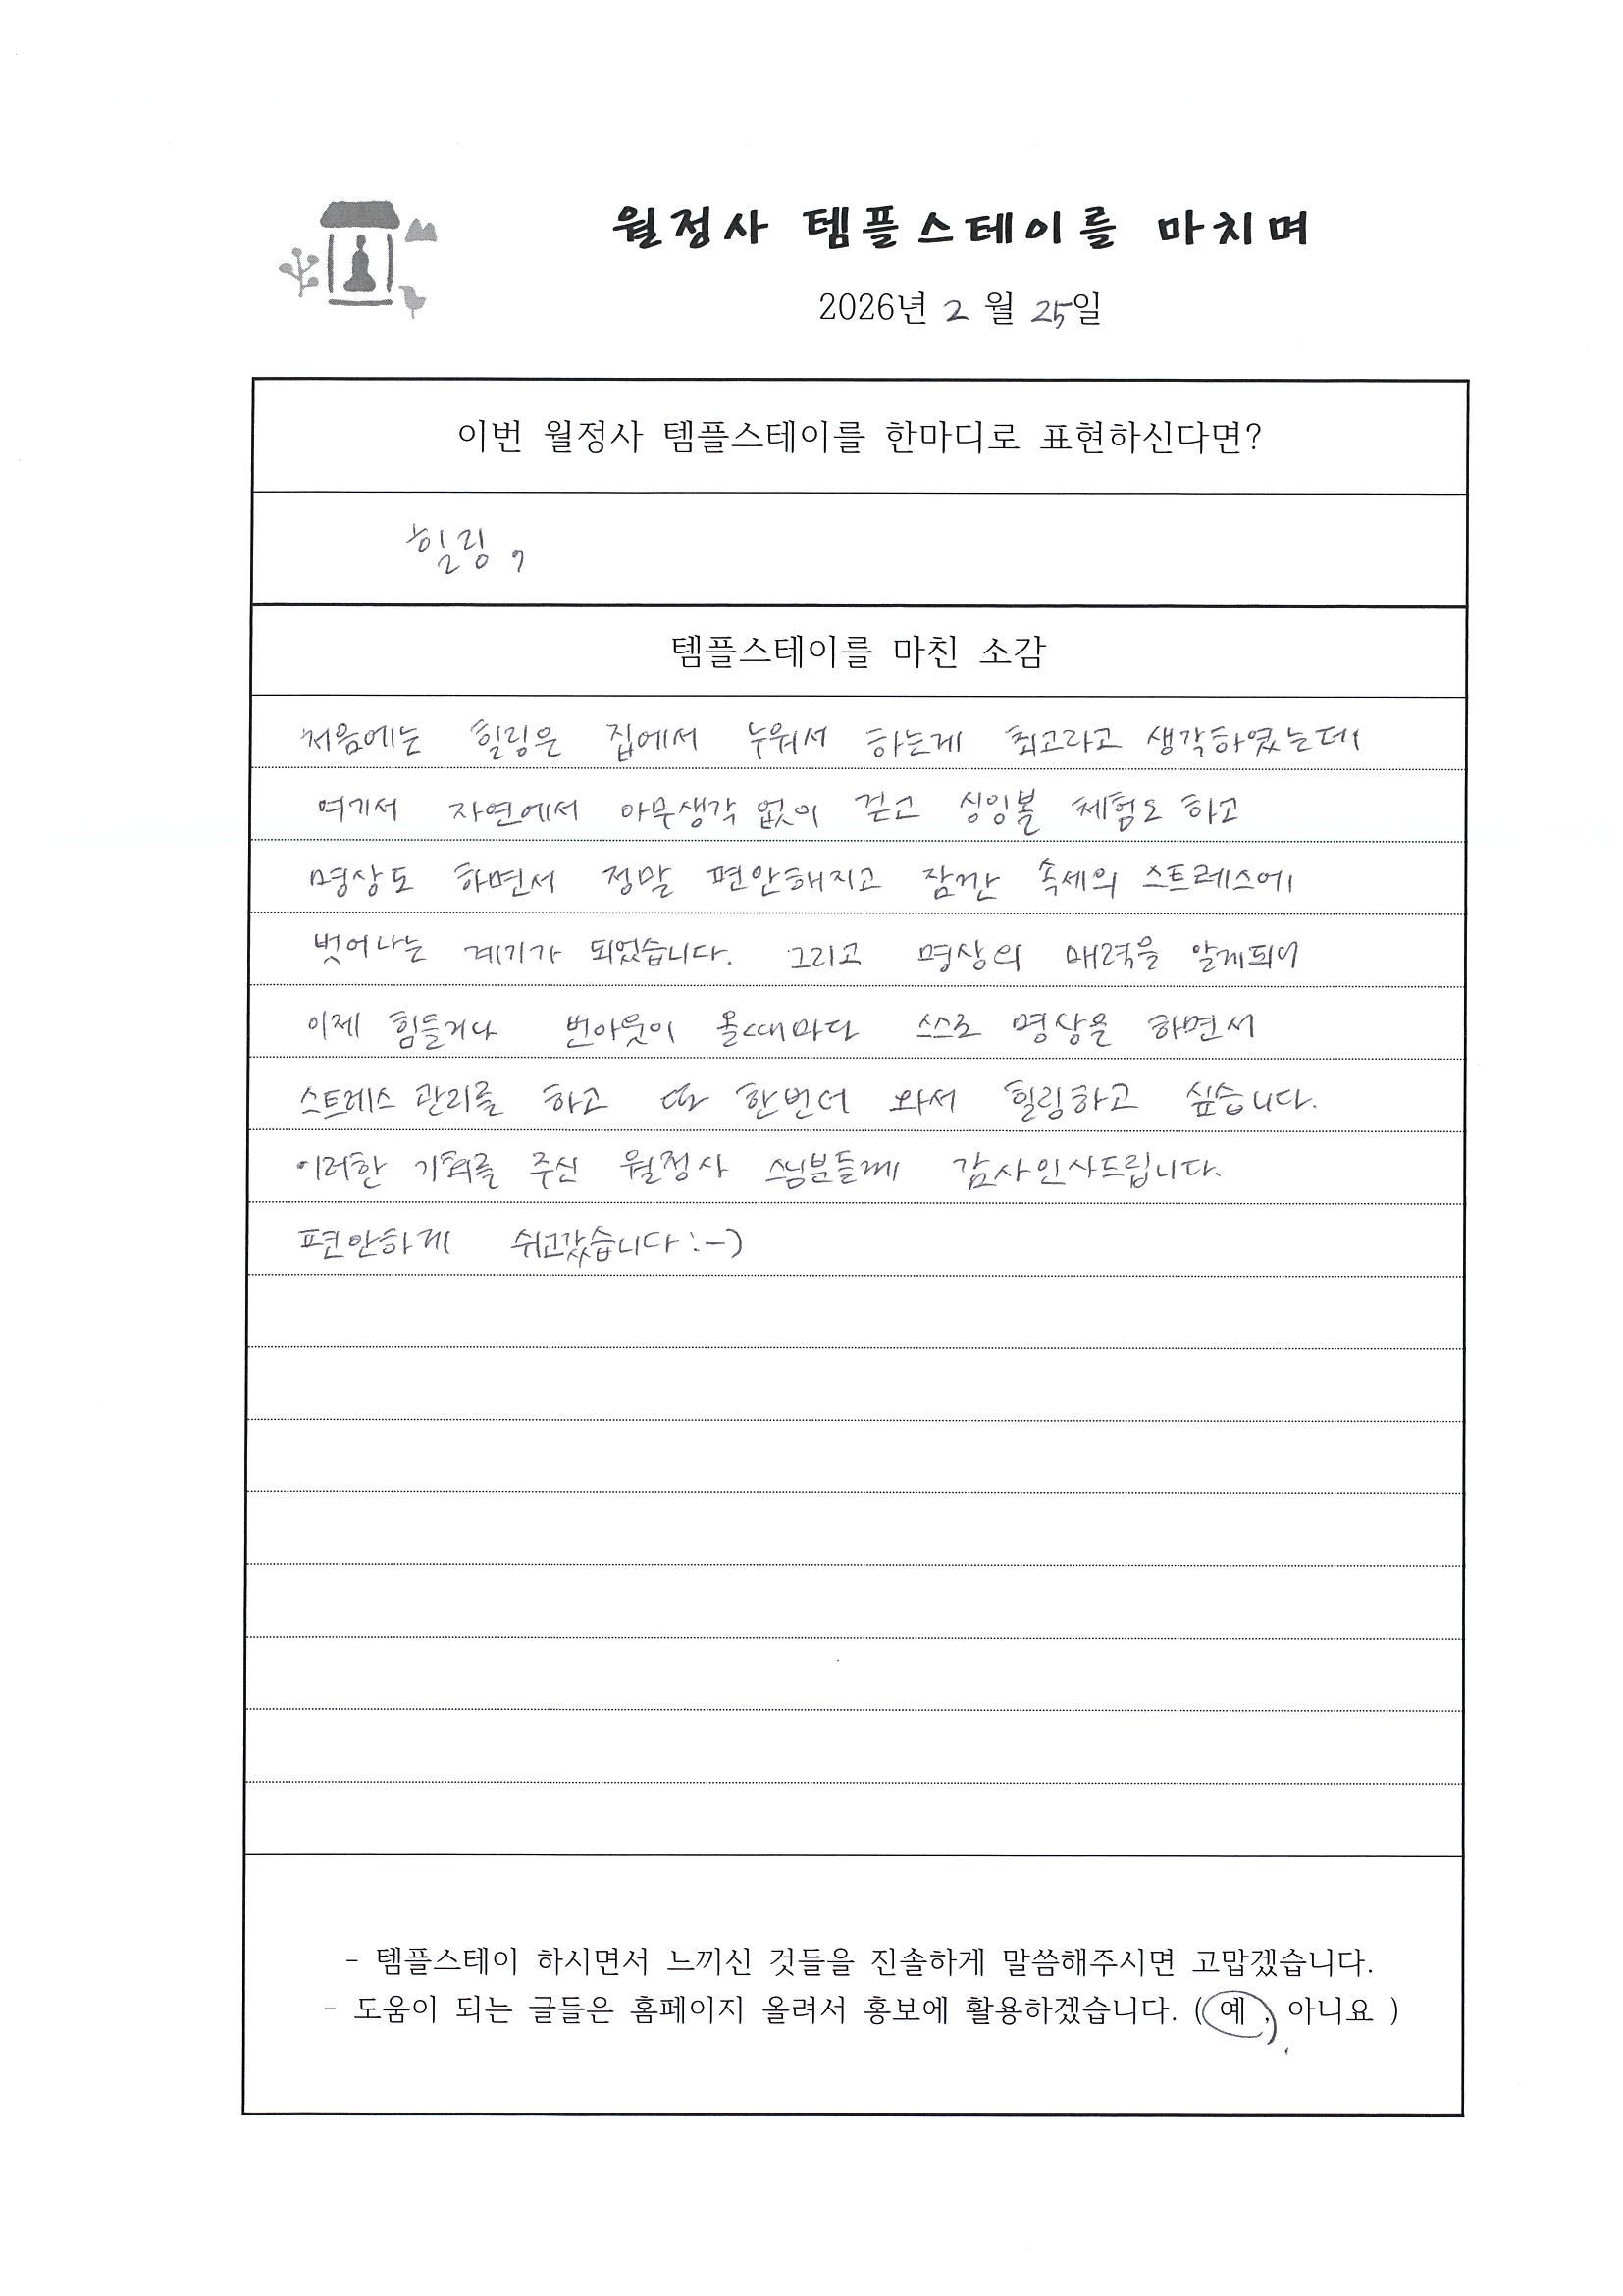 월정사 템플스테이를 마치며
2026년 2월 25일
이번 월정사 템플스테이를 한마디로 표현하신다면?
힐링,
템플스테이를 마친 소감
처음에는 힐링은 집에서 누워서 하는게 최고라고 생각하였는데
여기서 자연에서 아무생각 없이 걷고 싱잉볼 체험도 하고
명상도 하면서 정말 편안해지고 잠깐 속세의 스트레스에
벗어나는 계기가 되었습니다. 그리고 명상의 매력을 알게되어
이제 힘들거나 번아웃이 올때마다 스스로 명상을 하면서
스트레스 관리를 하고 또 한번더 와서 힐링하고 싶습니다.
이러한 기회를 주신 월정사 스님분들께 감사인사드립니다.
편안하게 쉬고갔습니다 :-)
- 템플스테이 하시면서 느끼신 것들을 진솔하게 말씀해주시면 고맙겠습니다.
- 도움이 되는 글들은 홈페이지 올려서 홍보에 활용하겠습니다. ( 예 , 아니요 )